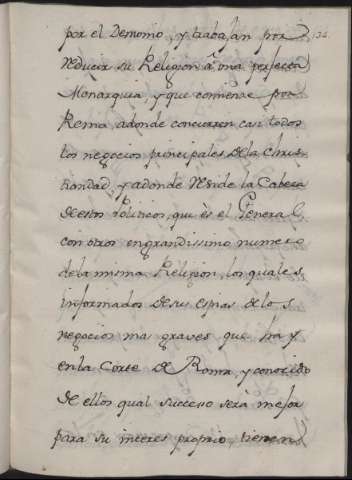 por el Demonio, y trabajan por
reducir su Religion à una perfecta
Monarquia, y que comienze por
Roma, adonde concurren casi todos
los negocios principales de la Chris
tiandad, y adonde reside la Cabeza
de estos Politicos, que ès el General,
con otros en grandissimo numero
de la misma Religion, los quales
informados de sus espias de los
negocios mas graves que hay
en la Corte de Roma, y conocido
de ellos qual successo serà mejor
para su interes proprio, tienen